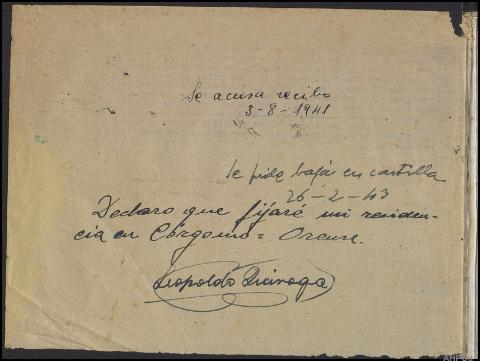 Se acusa recibo
3-8-1941
Se pide baja en cartilla
26-2-43
Declaro que fijaré mi residen-
cia en Córgomo = Orense.
Leopoldo Quiroga